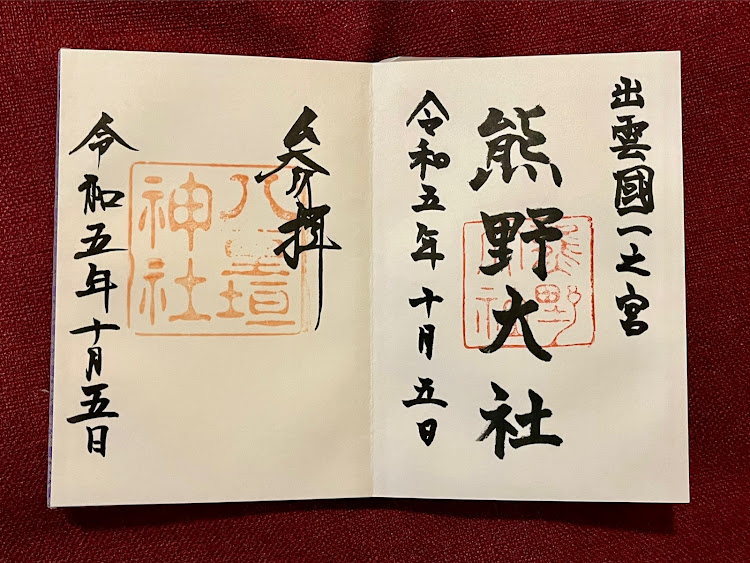 出雲國一之宮
熊野大社
熊野大社
令和五年十月五日
参拝
八重垣
神社
令和五年十月五日